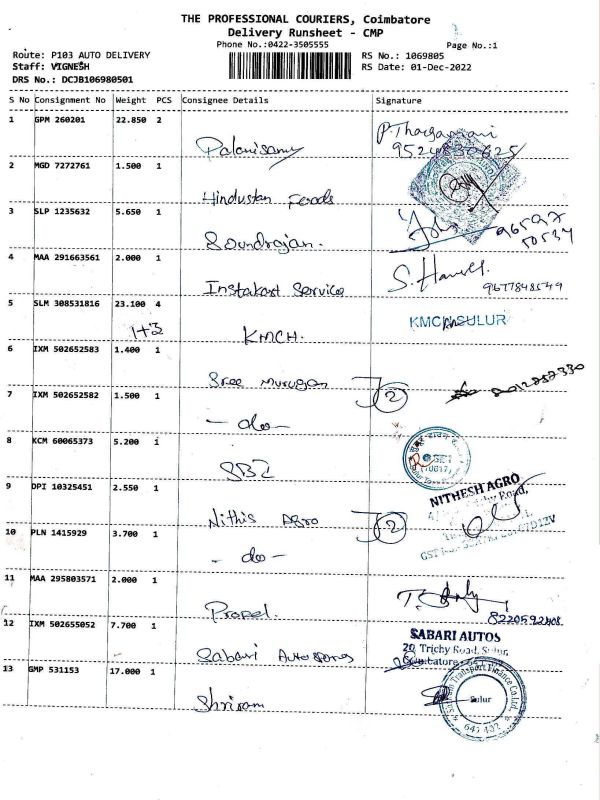 THE PROFESSIONAL COURIERS, Coimbatore
Delivery Runsheet - CMP
Phone No.:0422-3505555
Page No.:1
Route: P103 AUTO DELIVERY
RS No.: 1069805
Staff: VIGNESH
RS Date: 01-Dec-2022
DRS No.: DCJB106980501
S No Consignment No Weight PCS Consignee Details Signature
1 GPM 260201 22.850 2
Palanisamy
2 MGD 7272761 1.500 1
Hindustan Foods
3 SLP 1235632 5.650 1
Soundrajan.
96597
50534
4 MAA 291663561 2.000 1
Instakart Services
9677848549
5 SLM 308531816 23.100 4
1+3
KMCH.
KMCH SULUR
6 IXM 502652583 1.400 1
Sree Murugan
2
7 IXM 502652582 1.500 1
- do -
8 KCM 60065373 5.200 1
SBI
9 DPI 10325451 2.550 1
Nithis Agro
2
NITHESH AGRO
Trichy Road,
10 PLN 1415929 3.700 1
- do -
11 MAA 295803571 2.000 1
Propel.
12 IXM 502655052 7.700 1
Sabari Autospares
SABARI AUTOS
20, Trichy Road, Sulur,
Coimbatore
13 GMP 531153 17.000 1
Shriram
Shriram Transport Finance Co.Ltd.
Sulur
641 402